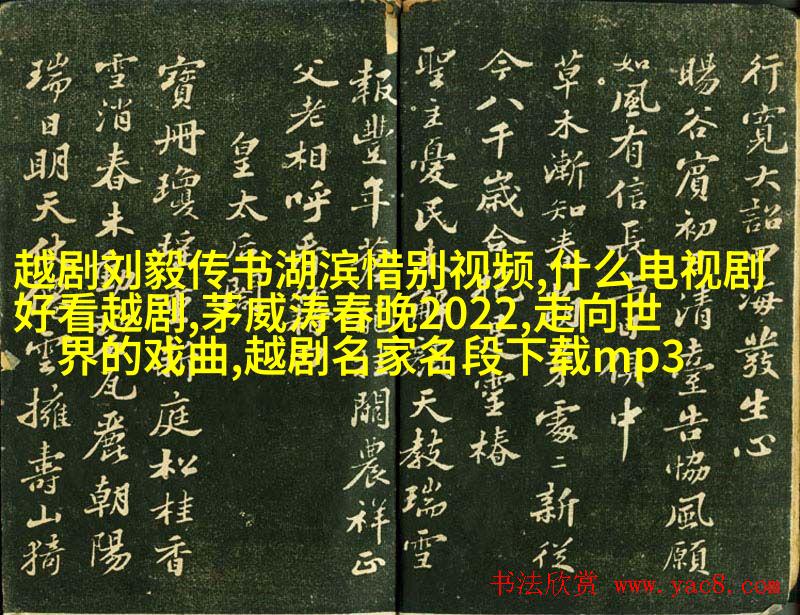 行寬大詔四海發生心
暘谷賓初清臺告協風願
如風有信長中
草木漸知春芽處二新從
今八千歲合靈椿
聖主憂民天教瑞雪
報豐年闕農祥正
父老相呼
皇太后閣
寶冊瓊新庭松桂香
雪消春未瓦麗朝陽
瑞日明天仗雲擁壽山猗
越剧刘毅传书湖滨惜别视频,什么电视剧
好看越剧,茅威涛春晚2022,走向世
界的戏曲,越剧名家名段下载mp3
书法欣赏 www.yac8.com